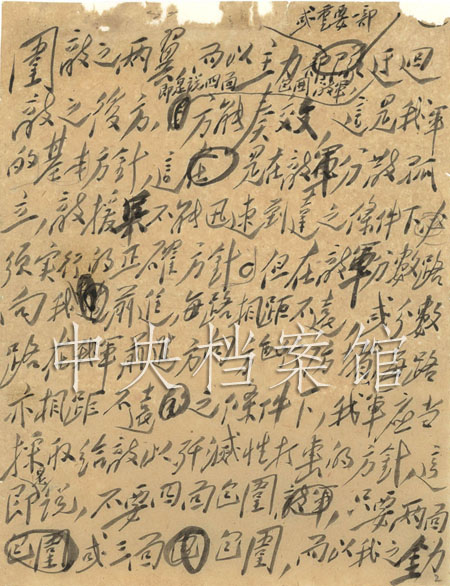 或重要一部
圍敵之两翼,而以主力迂迴
即是說四面包圍敵軍,
敵之後方,方能奏效,這是我軍
的基本方針,這是在敵軍分散孤
立,敵援不能迅速到達之條件下必
須实行的正確方針。但在敵軍分數路
向我前進,每路相距不遠,或分數
路在我軍前進方向每路
亦相距不遠之條件下,我軍应当
採取給敵以歼滅性打击的方針,這
即是說,不要四面包圍,只要兩面
包圍或三面包圍,而以我之全力
中央档案馆